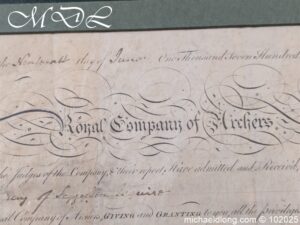 MDL
day of June One Thousand Seven Hundred
Royal Company of Archers
the Judges of the Company, & their report, Have admitted and Received,
of
Company of Archers GIVING and GRANTING to you all the privileges
michaeldlong.com © 102025